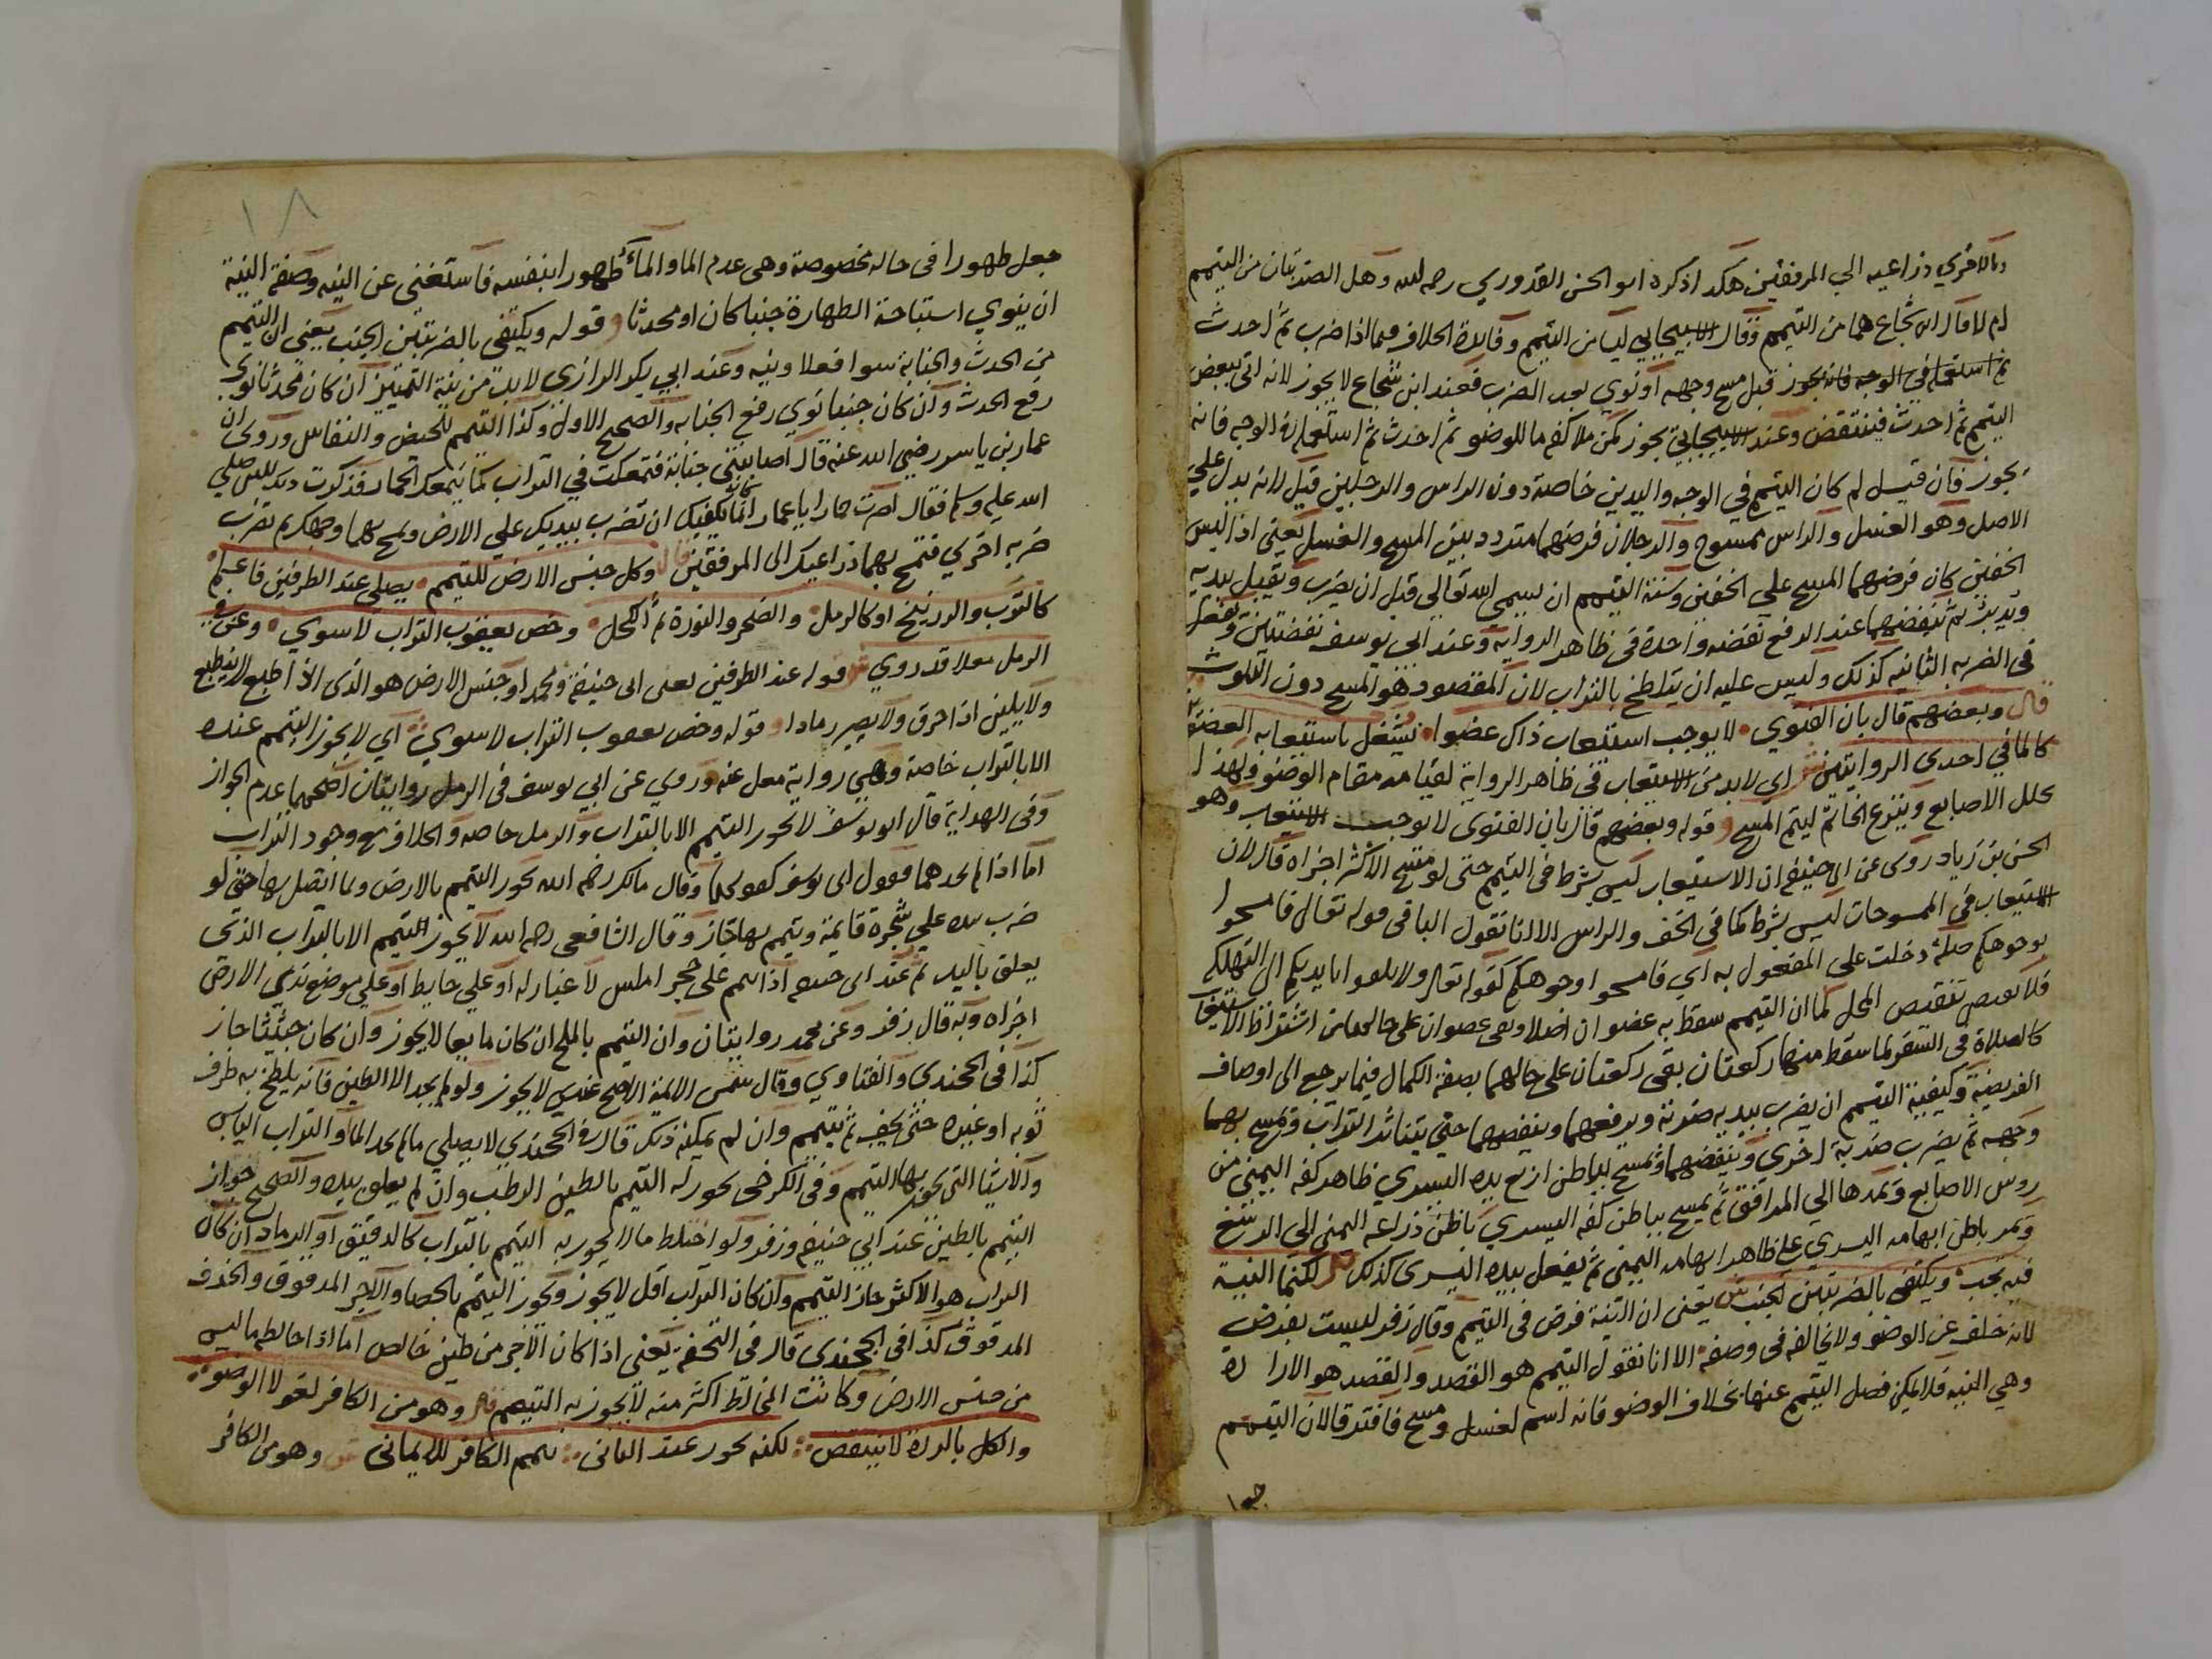 وبالاخري ذراعيه الي المرفقين هكذا ذكره ابو الحسن القدوري رحمه الله وهل الضربتان من التيمم
ام لا قال ابن شجاع هما من التيمم وقال الاسبيجابي ليسا من التيمم وفايدة الخلاف فيما اذا ضرب ثم احدث
قبل مسح وجهه او نوي بعد الضرب فعند ابن شجاع لا يجوز لانه اتي ببعض
التيمم ثم احدث فينتقض وعند الاسبيجابي يجوز كمن ملا كفه ما للوضو ثم احدث ثم استعمله في الوجه فانه
يجوز فان قيل لم كان التيمم في الوجه واليدين خاصة دون الراس والرجلين قيل لانه بدل علي
الاصل وهو الغسل والراس ممسوح والرجلان فرضهما متردد بين المسح والغسل يعني اذا لبس
الخفين كان فرضهما المسح علي الخفين وسنة التيمم ان يسمي الله تعالي قبل ان يضرب ويقبل بيديه
ويدبر ثم ينفضهما عند الرفع نفضه واحدة في ظاهر الرواية وعند ابي يوسف نفضتين ويفعل
في الضربه الثانيه كذلك وليس عليه ان يتلطخ بالتراب لان المقصود هو المسح دون التلوث
قال وبعضهم قال بان الفتوي لا يوجب استيعاب ذاك عضوا نشغل باستيعابه العضو
كالما في احدي الروايتين ش اي لابد من الاستيعاب في ظاهر الرواية لقيامه مقام الوضو ولهذا
يخلل الاصابع وينزع الخاتم ليتم المسح قوله وبعضهم قال بان الفتوي لا يوجب الاستيعاب وهو
الحسن بن زياد روي عن ابي حنيفة ان الاستيعاب ليس بشرط في التيمم حتى لو مسح الاكثر اجزاه قال لان
الاستيعاب في الممسوحات ليس بشرط كما في الخف والراس الا انا نقول الباقي قوله تعالي فامسحوا
بوجوهكم صلة دخلت علي المفعول به اي فامسحوا وجوهكم كقوله تعالي ولا تلقوا بايديكم الي التهلكه
كالصلاة في السفر لما سقط منها ركعتان بقي ركعتان علي حالهما بصفة الكمال فيما يرجع الي اوصاف
الفريضة وكيفية التيمم ان يضرب بيديه ضربة ويرفعهما وينفضهما حتي يتناثر التراب ويمسح بهما
وجهه ثم يضرب ضربة اخري وينفضهما ويمسح بباطن اربع يده اليسري ظاهر كفه اليمني من
روس الاصابع ويمدها الي المرافق ثم يمسح بباطن كفه اليسري باطن ذراعه اليمني الي الرسغ
ويمر باطن ابهامه اليسري علي ظاهر ابهامه اليمني ثم يفعل بيده اليسري كذلك لكنما النية
فيه تجب ويكتفي بالضربتين الجنب ش يعني ان النية فرض في التيمم وقال زفر ليست بفرض
لانه خلف عن الوضو ولا يخالفه في وصفه الا انا نقول التيمم هو القصد والقصد هو الارادة
وهي النيه فلا يمكن فصل التيمم عنها بخلاف الوضو فانه اسم لغسل ومسح فافترقا لان التيمم
جعل
١٨
جعل طهورا في حاله مخصوصة وهي عدم الما والمآء طهورا بنفسه فاستغني عن النيه وصفة النية
ان ينوي استباحة الطهارة جنبا كان او محدثا قوله ويكتفي بالضربتين الجنب يعني ان التيمم
من الحدث والجنابة سوا فعلا ونيه وعند ابي بكر الرازي لابد من نية التمييز ان كان محدثا نوي
رفع الحدث وان كان جنبا نوي رفع الجنابه والصحيح الاول وكذا التيمم للحيض والنفاس وروي ان
عمار بن ياسر رضي الله عنه قال اصابتني جنابة فتمعكت في التراب كما يتمعك الحمار فذكرت ذلك للنبي صلي
الله عليه وسلم فقال اصرت حمارا يا عمار انما يكفيك ان تضرب بيديك علي الارض وتمسح بهما وجهك ثم تضرب
ضربه اخري فتمسح بهما ذراعيك الي المرفقين قال وكل جنس الارض للتيمم يصلح عند الطرفين فاعلم
كالترب والزرنيخ او كالرمل والصخر والنورة ثم الكحل وخص يعقوب التراب لا سوي وعنه في
الرمل قد روي ش قوله عند الطرفين يعني ابي حنيفة ومحمد وجنس الارض هو الذي اذا طبع لا ينطبع
ولا يلين اذا حرق ولا يصير رمادا قوله وخص يعقوب التراب لا سوي اي لا يجوز التيمم عنده
الا بالتراب خاصة وهي رواية معلي عنه وروي عن ابي يوسف في الرمل روايتان اصحهما عدم الجواز
وفي الهداية قال ابو يوسف لا يجوز التيمم الا بالتراب والرمل خاصه والخلاف مع وجود التراب
اما اذا لم يجدهما فقول ابي يوسف كقولهما وقال مالك رحمه الله يجوز التيمم بالارض وبما اتصل بها حتي لو
ضرب يده علي شجرة قايمة وتيمم بها جاز وقال الشافعي رحمه الله لا يجوز التيمم الا بالتراب الذي
يعلق باليد ثم عند ابي حنيفه اذا تيمم علي حجر املس لا غبار له او علي حايط او علي موضع ندي الارض
اجزاه وبه قال زفر وعن محمد روايتان وان التيمم بالملح ان كان مايعا لا يجوز وان كان جبليا جاز
كذا في الخجندي والفتاوي وقال شمس الايمة الاصح عندي لا يجوز ولو لم يجد الا الطين فانه يلطخ به طرف
ثوبه او غيره حتي يجف ثم يتيمم وان لم يمكنه ذلك قال في الخجندي لا يصلي ما لم يجد الما او التراب اليابس
والاشيا التي يجوز بها التيمم وفي الكرخي يجوز له التيمم بالطين الرطب وان لم يعلق بيده والصحيح جواز
التيمم بالطين عند ابي حنيفة وزفر ولو اختلط مالا يجوز به التيمم بالتراب كالدقيق او الرماد ان كان
التراب هو الاكثر جاز التيمم وان كان التراب اقل لا يجوز ويجوز التيمم بالحصا والآجر المدقوق والخزف
المدقوق كذا في الخجندي قال في التحفة يعني اذا كان الآجر من طين خالص اما اذا خالطه ما ليس
من جنس الارض وكانت المخالط اكثر منه لا يجوز به التيمم قال وهو من الكافر لغو لا الوضو
والكل بالردة لا ينتقض لكنه يجوز عند الثاني تيمم الكافر للايماني ش وهو من الكافر